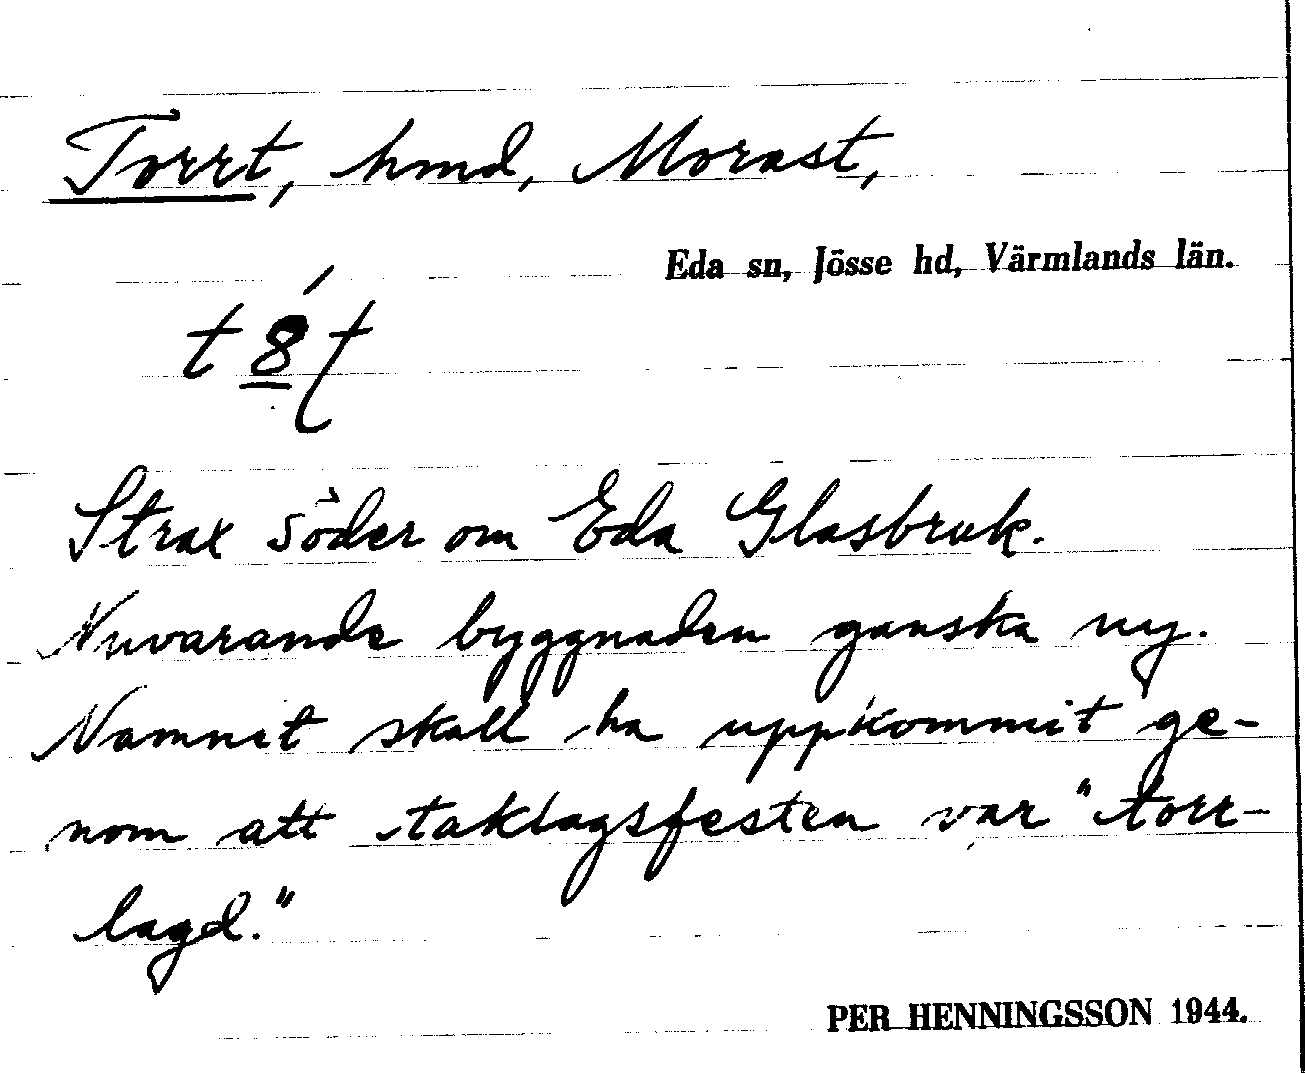 Torrt, hmd, Morast,
Eda sn, Jösse hd, Värmlands län.
Strax söder om Eda Glasbruk.
Nuvarande byggnaden ganska ny.
Namnet skall ha uppkommit ge-
nom att taklagsfesten var "torr-
lagd."
PER HENNINGSSON 1944.